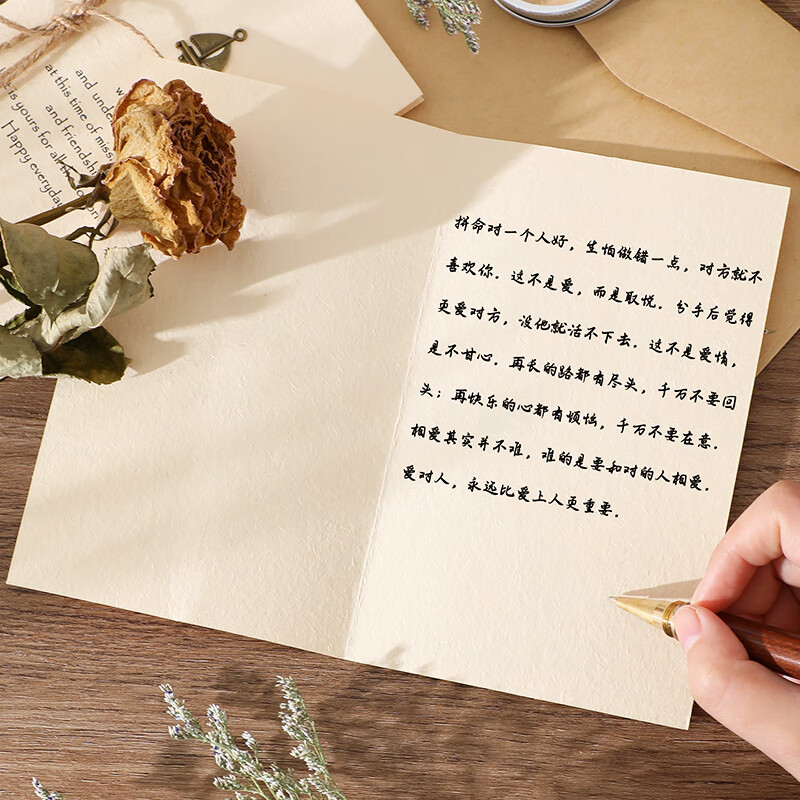 and unde
at this time of miss
and friendsh
t is yours for all th
Happy everyday
拼命对一个人好，生怕做错一点，对方就不
喜欢你．这不是爱，而是取悦．分手后觉得
更爱对方，没他就活不下去．这不是爱情，
是不甘心．再长的路都有尽头，千万不要回
头；再快乐的心都有烦恼，千万不要在意．
相爱其实并不难，难的是要和对的人相爱．
爱对人，永远比爱上人更重要．